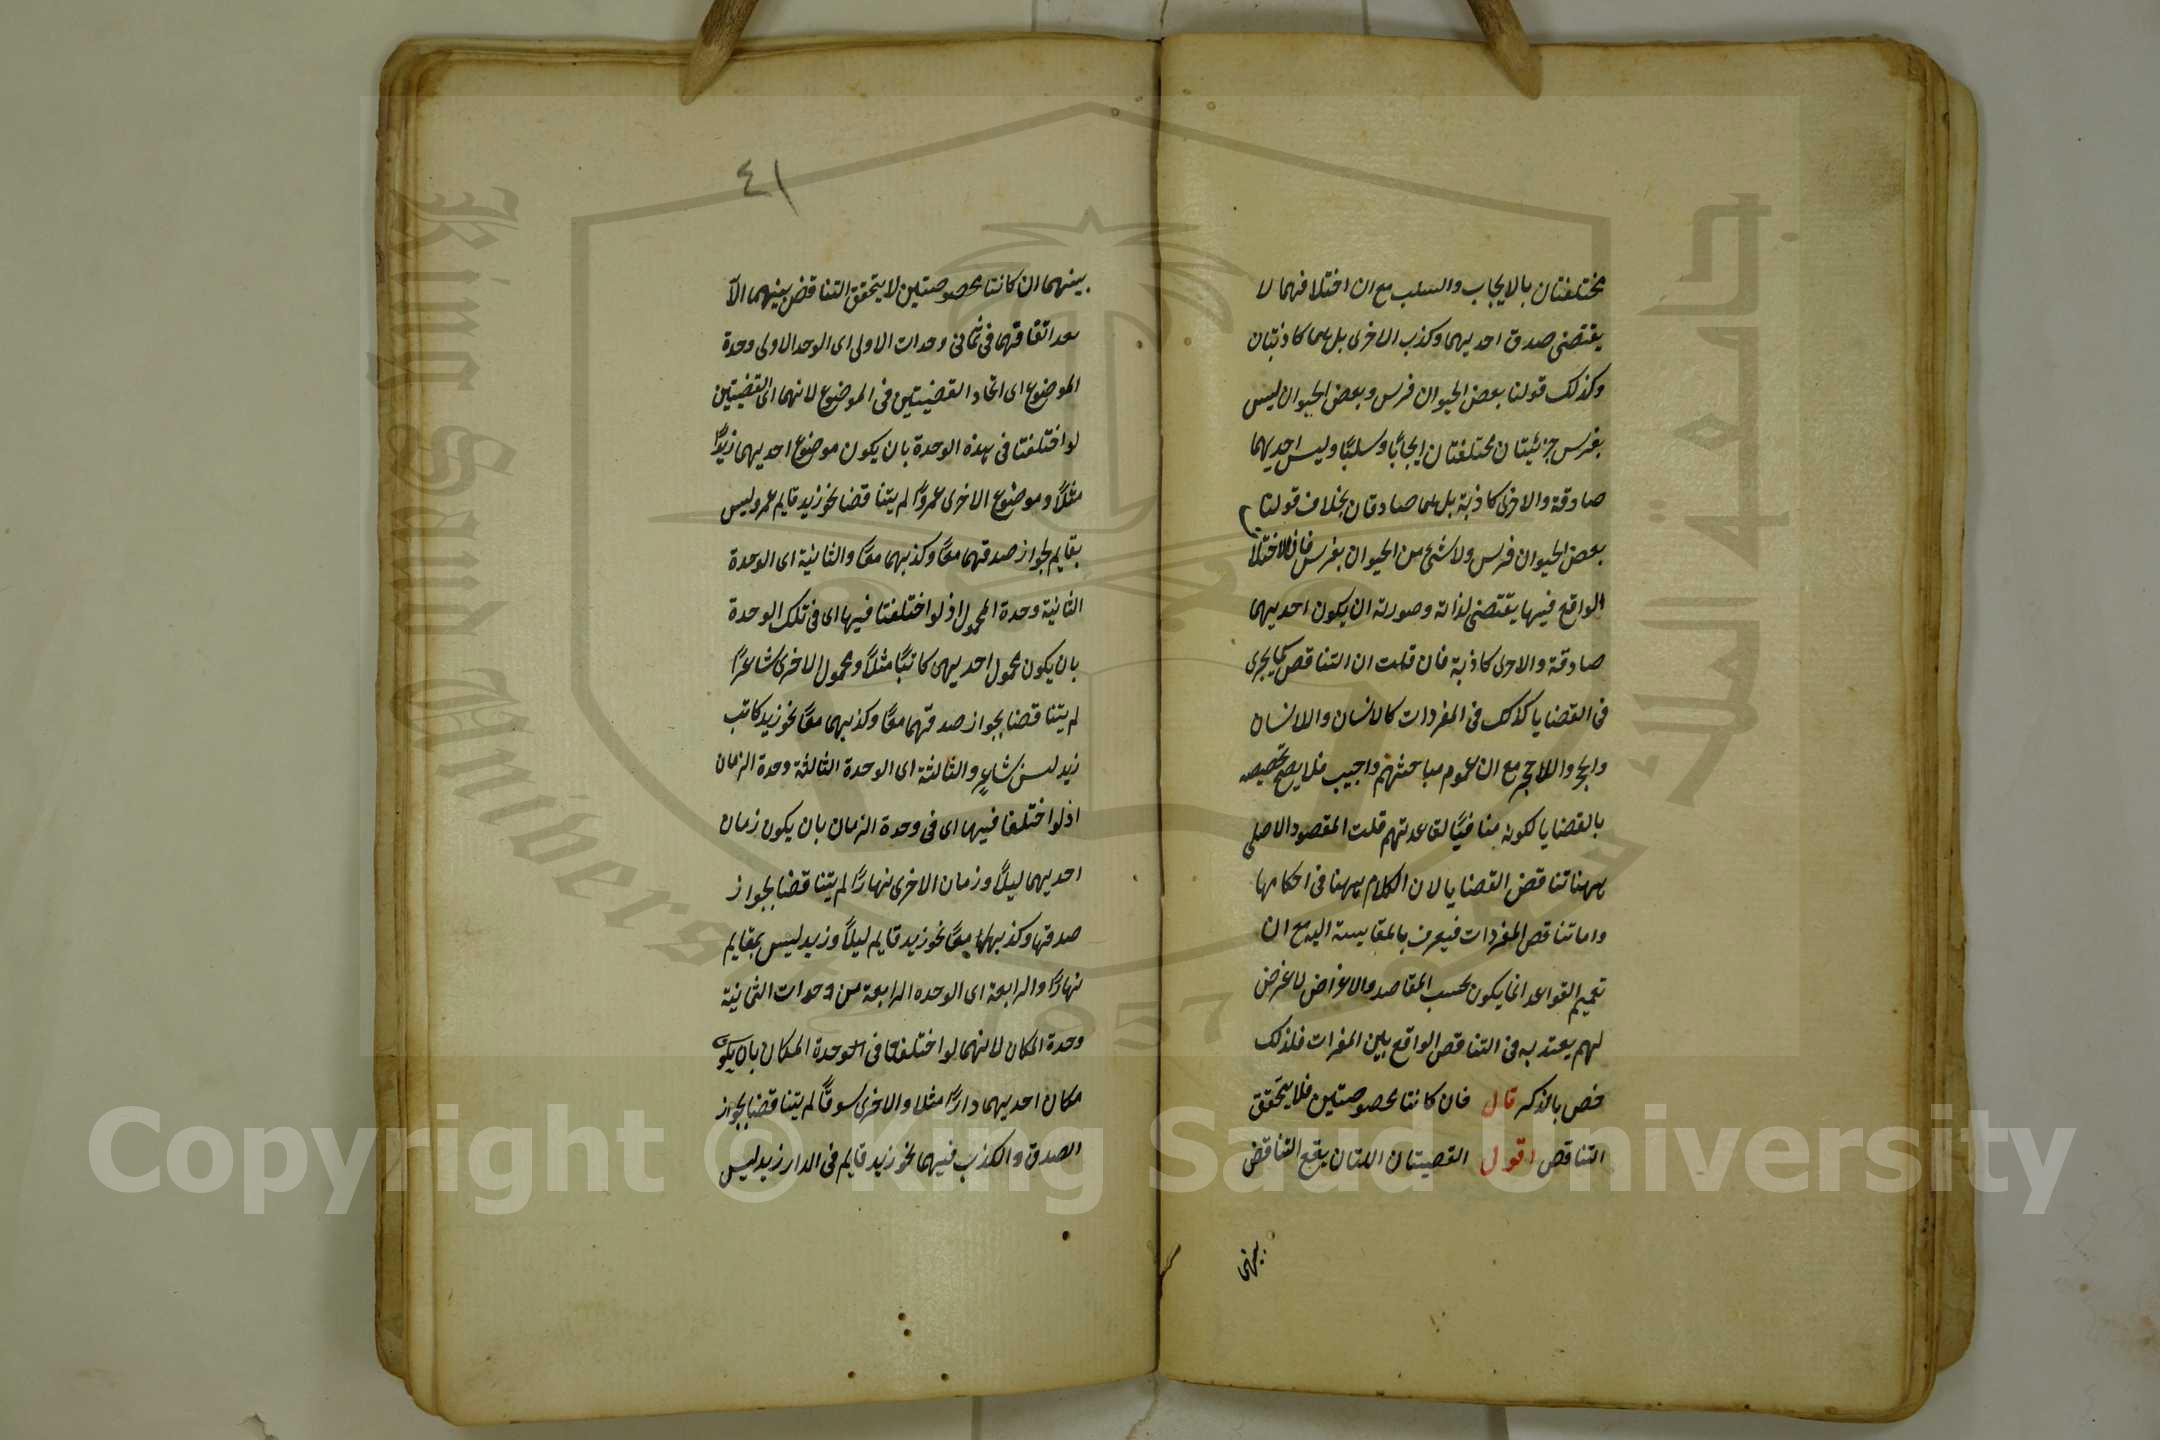 مختلفتان بالايجاب والسلب مع ان اختلافهما لا
يقتضى صدق احديهما وكذب الاخرى بل هما كاذبتان
وكذلك قولنا بعض الحيوان فرس وبعض الحيوان ليس
بفرس جزئيتان مختلفتان ايجابًا وسلبًا وليس احديهما
صادقة والاخرى كاذبة بل هما صادقان بخلاف قولنا
بعض الحيوان فرس ولا شئ من الحيوان بفرس فان الاختلا
الواقع فيها يقتضى لذاته وصورته ان يكون احديهما
صادقة والاخرى كاذبة فان قلت ان التناقض كما يجرى
فى القضايا كذلك فى المفردات كالانسان واللاانسان
والحجر واللاحجر مع ان عموم مباحثهم واجيب فلا يصح تخصيصه
بالقضايا لكونه منافيًا لقاعدتهم قلت المقصود الاصلى
ههنا تناقض القضايا لان الكلام ههنا فى احكامها
واما تناقض المفردات فيعرف بالمقايسة اليه مع ان
تعميم القواعد انما يكون بحسب المقاصد والاغراض لا غرض
لهم يعتد به فى التناقض الواقع بين المفرات فلذلك
خص بالذكر قال فان كانتا محصوصتين فلا يتحقق
التناقض اقول القضيتان اللتان يقع التناقض
بينهما
٤١
بينهما ان كانتا محصوصتين لا يتحقق التناقض بينهما الا
بعد اتفاقهما فى ثمانى وحدات الاولى اى الوحد الاولى وحدة
الموضوع اى اتحاد القضيتين فى الموضوع لانهما اى القضيتين
لو اختلفتا فى هذه الوحدة بان يكون موضوع احديهما زيدًا
مثلًا وموضوع الاخرى عمروًا لم يتناقضا نحو زيد قايم عمرو ليس
بقايم لجواز صدقهما معًا وكذبهما معًا والثانية اى الوحدة
الثانية وحدة المحمول اذ لو اختلفتا فيها اى فى تلك الوحدة
بان يكون محمول احديهى كاتبًا مثلًا ومحمول الاخرى شاعرًا
لم يتناقضا بجواز صدقهما معًا وكذبهما معًا نحو زيد كاتب
زيد ليس شاعرٍ والثالثة اى الوحدة الثالثة وحدة الزمان
اذ لو اختلفا فيها اى فى وحدة الزمان بان يكون زمان
احديهما ليلًا وزمان الاخرى نهارًا لم يتناقضا بجواز
صدقها وكذبهما معًا نحو زيد قايم ليلًا وزيد ليس بقايم
نهارًا والرابعة اى الوحده الرابعة من وحدات الثمانية
وحدة المكان لانهما لو اختلفتا فى الوحدة المكان بان يكون
مكان احديهما دارًا مثلا والاخرى سوقًا لم يتناقضا بجواز
الصدق والكذب فيهما نحو زيد قايم فى الدار زيد ليس
Copyright © King Saud University
King Saud University
جامعة الملك سعود
1957